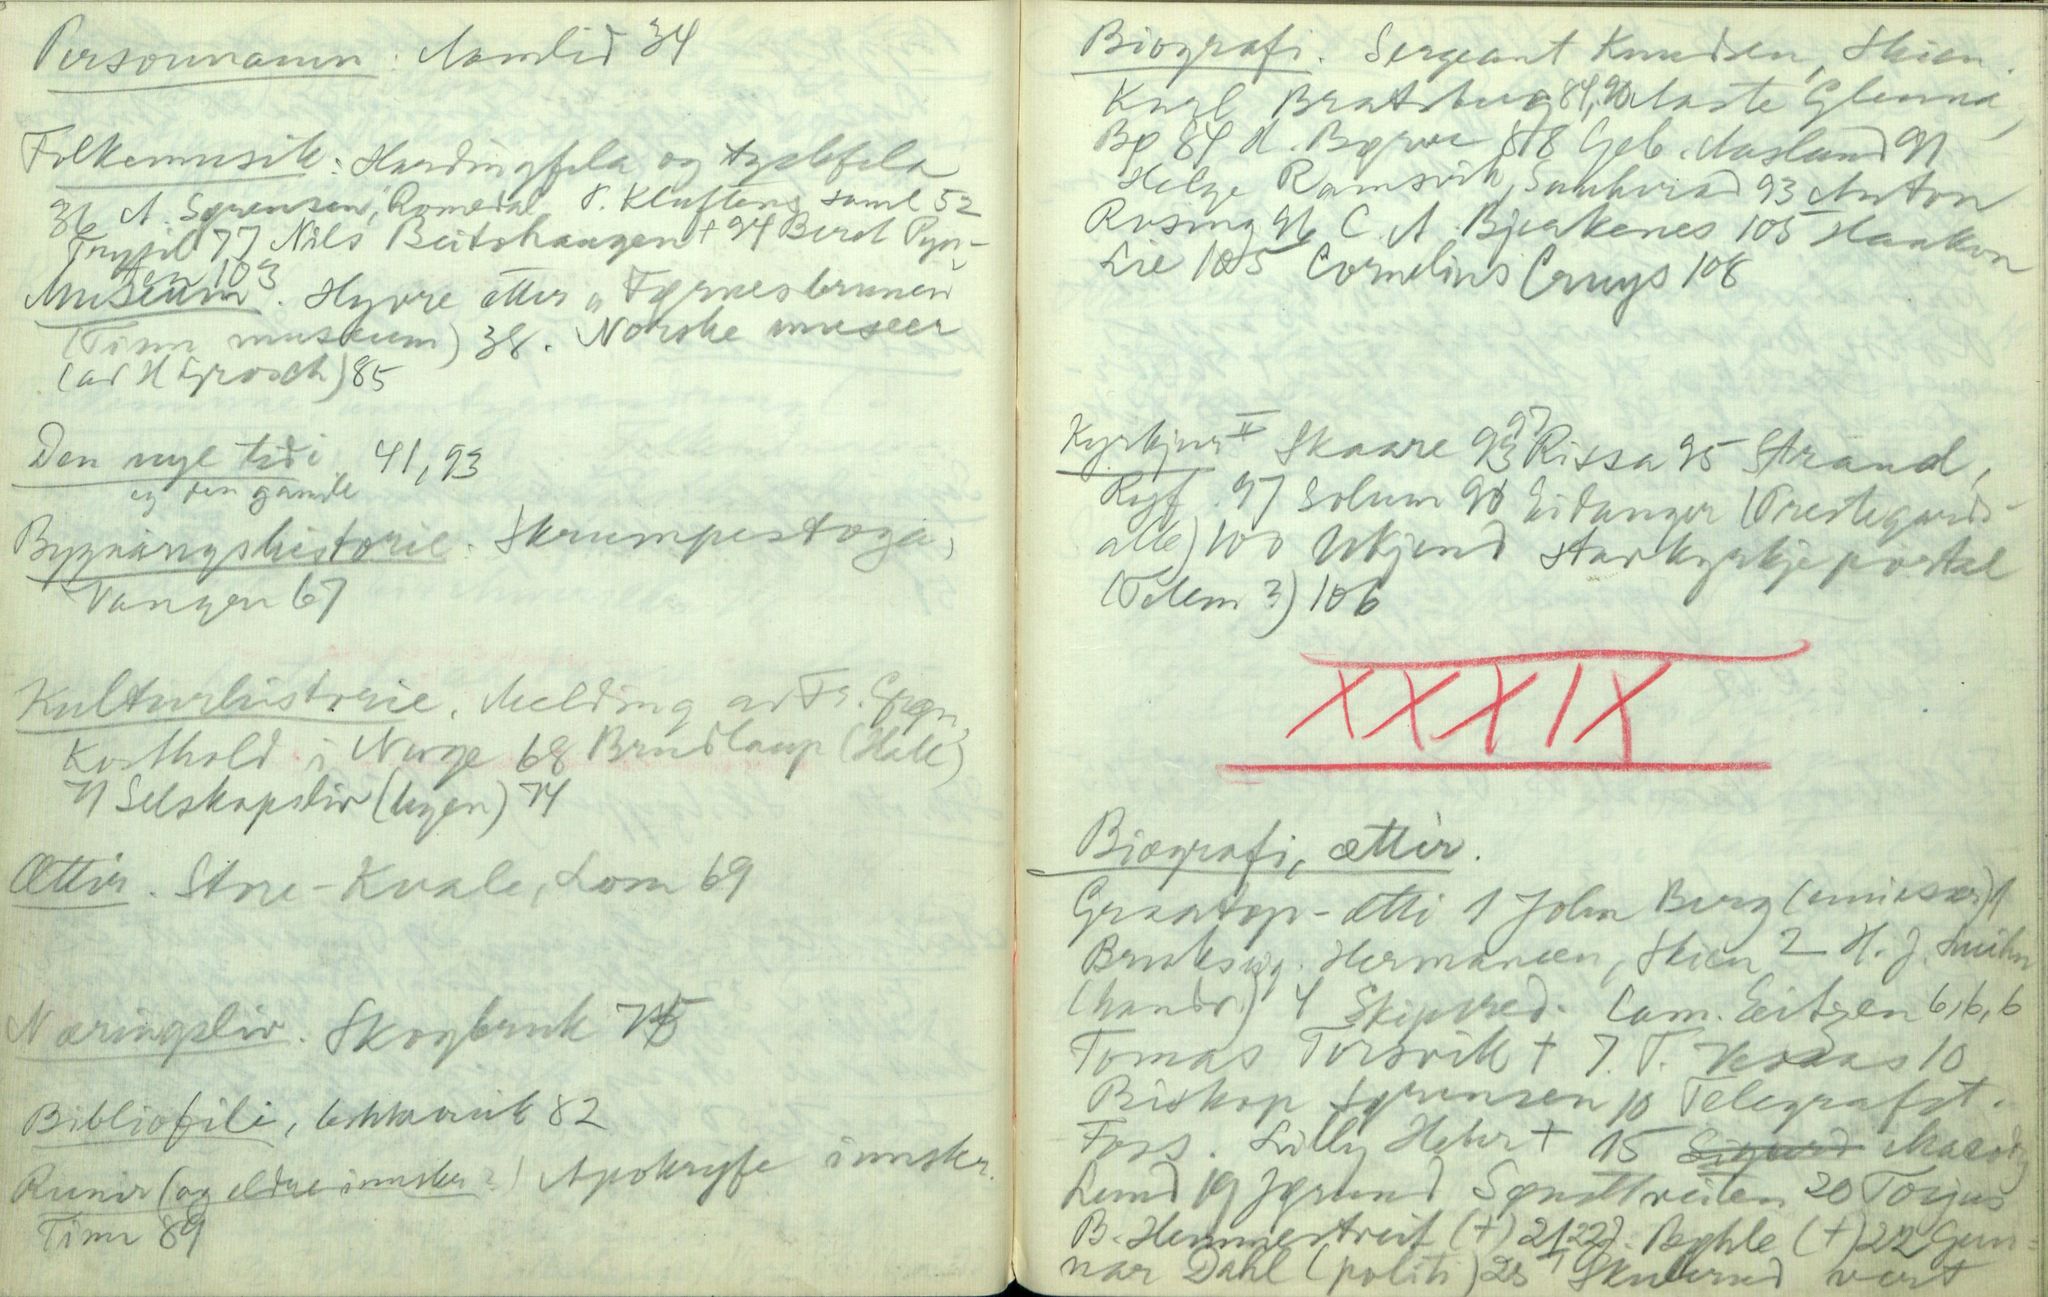 Personnamn: Aamlid 34
Folkemusik: Hardingfela og tyskfela
36 A. Sørensen, Romedal P. Kluftens saml 52
Trysil 77 Nils Beitohaugen + 94 Berit Pyn-
ten 103
Museum. Hyvre etter "Førnesbrunen"
(Tinn museum) 38. Norske museer
(av H Grosch) 85
Den nye tidi 41, 93
og den gamle
Bygningshistorie. Skrumpestoga,
Vangen 67
Kulturhistorie. Melding av Fr. Grøn,
Kosthold i Norge 68 Brudlaup (Hall)
71 Selskapsliv (Lyen) 74
Ættir. Store-Kvale, Lom 69
Næringsliv. Skogbruk 75
Bibliofili, 82
Runir (og eldre innskr.) Apokryfe innskr.
Tinn 89
Biografi. Sergeant Knudsen, Skien.
Karl Bratsberg 84, 90 Aaste Glenna,
Bø 84 H. Bgrve 88 Geb. Aasland 91
Helge Ramsvik, Sauherad 93 Anton
Rosing 96 C. A. Bjerkenes 105 Haakon
Lie 105 Cornelius Cruys 108
Kyrkjur II Skaare 93 97 Rissa 95 Strand,
Ryf. 97 Solum 98 Eidanger (Prestegards-
alle) 100 Ukjend stavkyrkjeportal
(Telem?) 106
XXXIX
Biografi, ættir.
Graatop-ætti 1 John Berg 1
Brukseig. Hermansen, Skien 2 H. J.
(handv.) 4 Skipsred. Cam. Eitzen 6, 6, 6
Tomas Torsvik + 7. T. Vesaas 10
Biskop Sørensen 10 Telegrafst.
Foss. Lilly Heber + 15 Sigurd
Lund 19 Jørund Sønstteveiten 20 Torjus
B. Hemmestveit (+) 21, 22 Bøhle (+) 22 Gun-
nar Dahl (politi) 25 vert